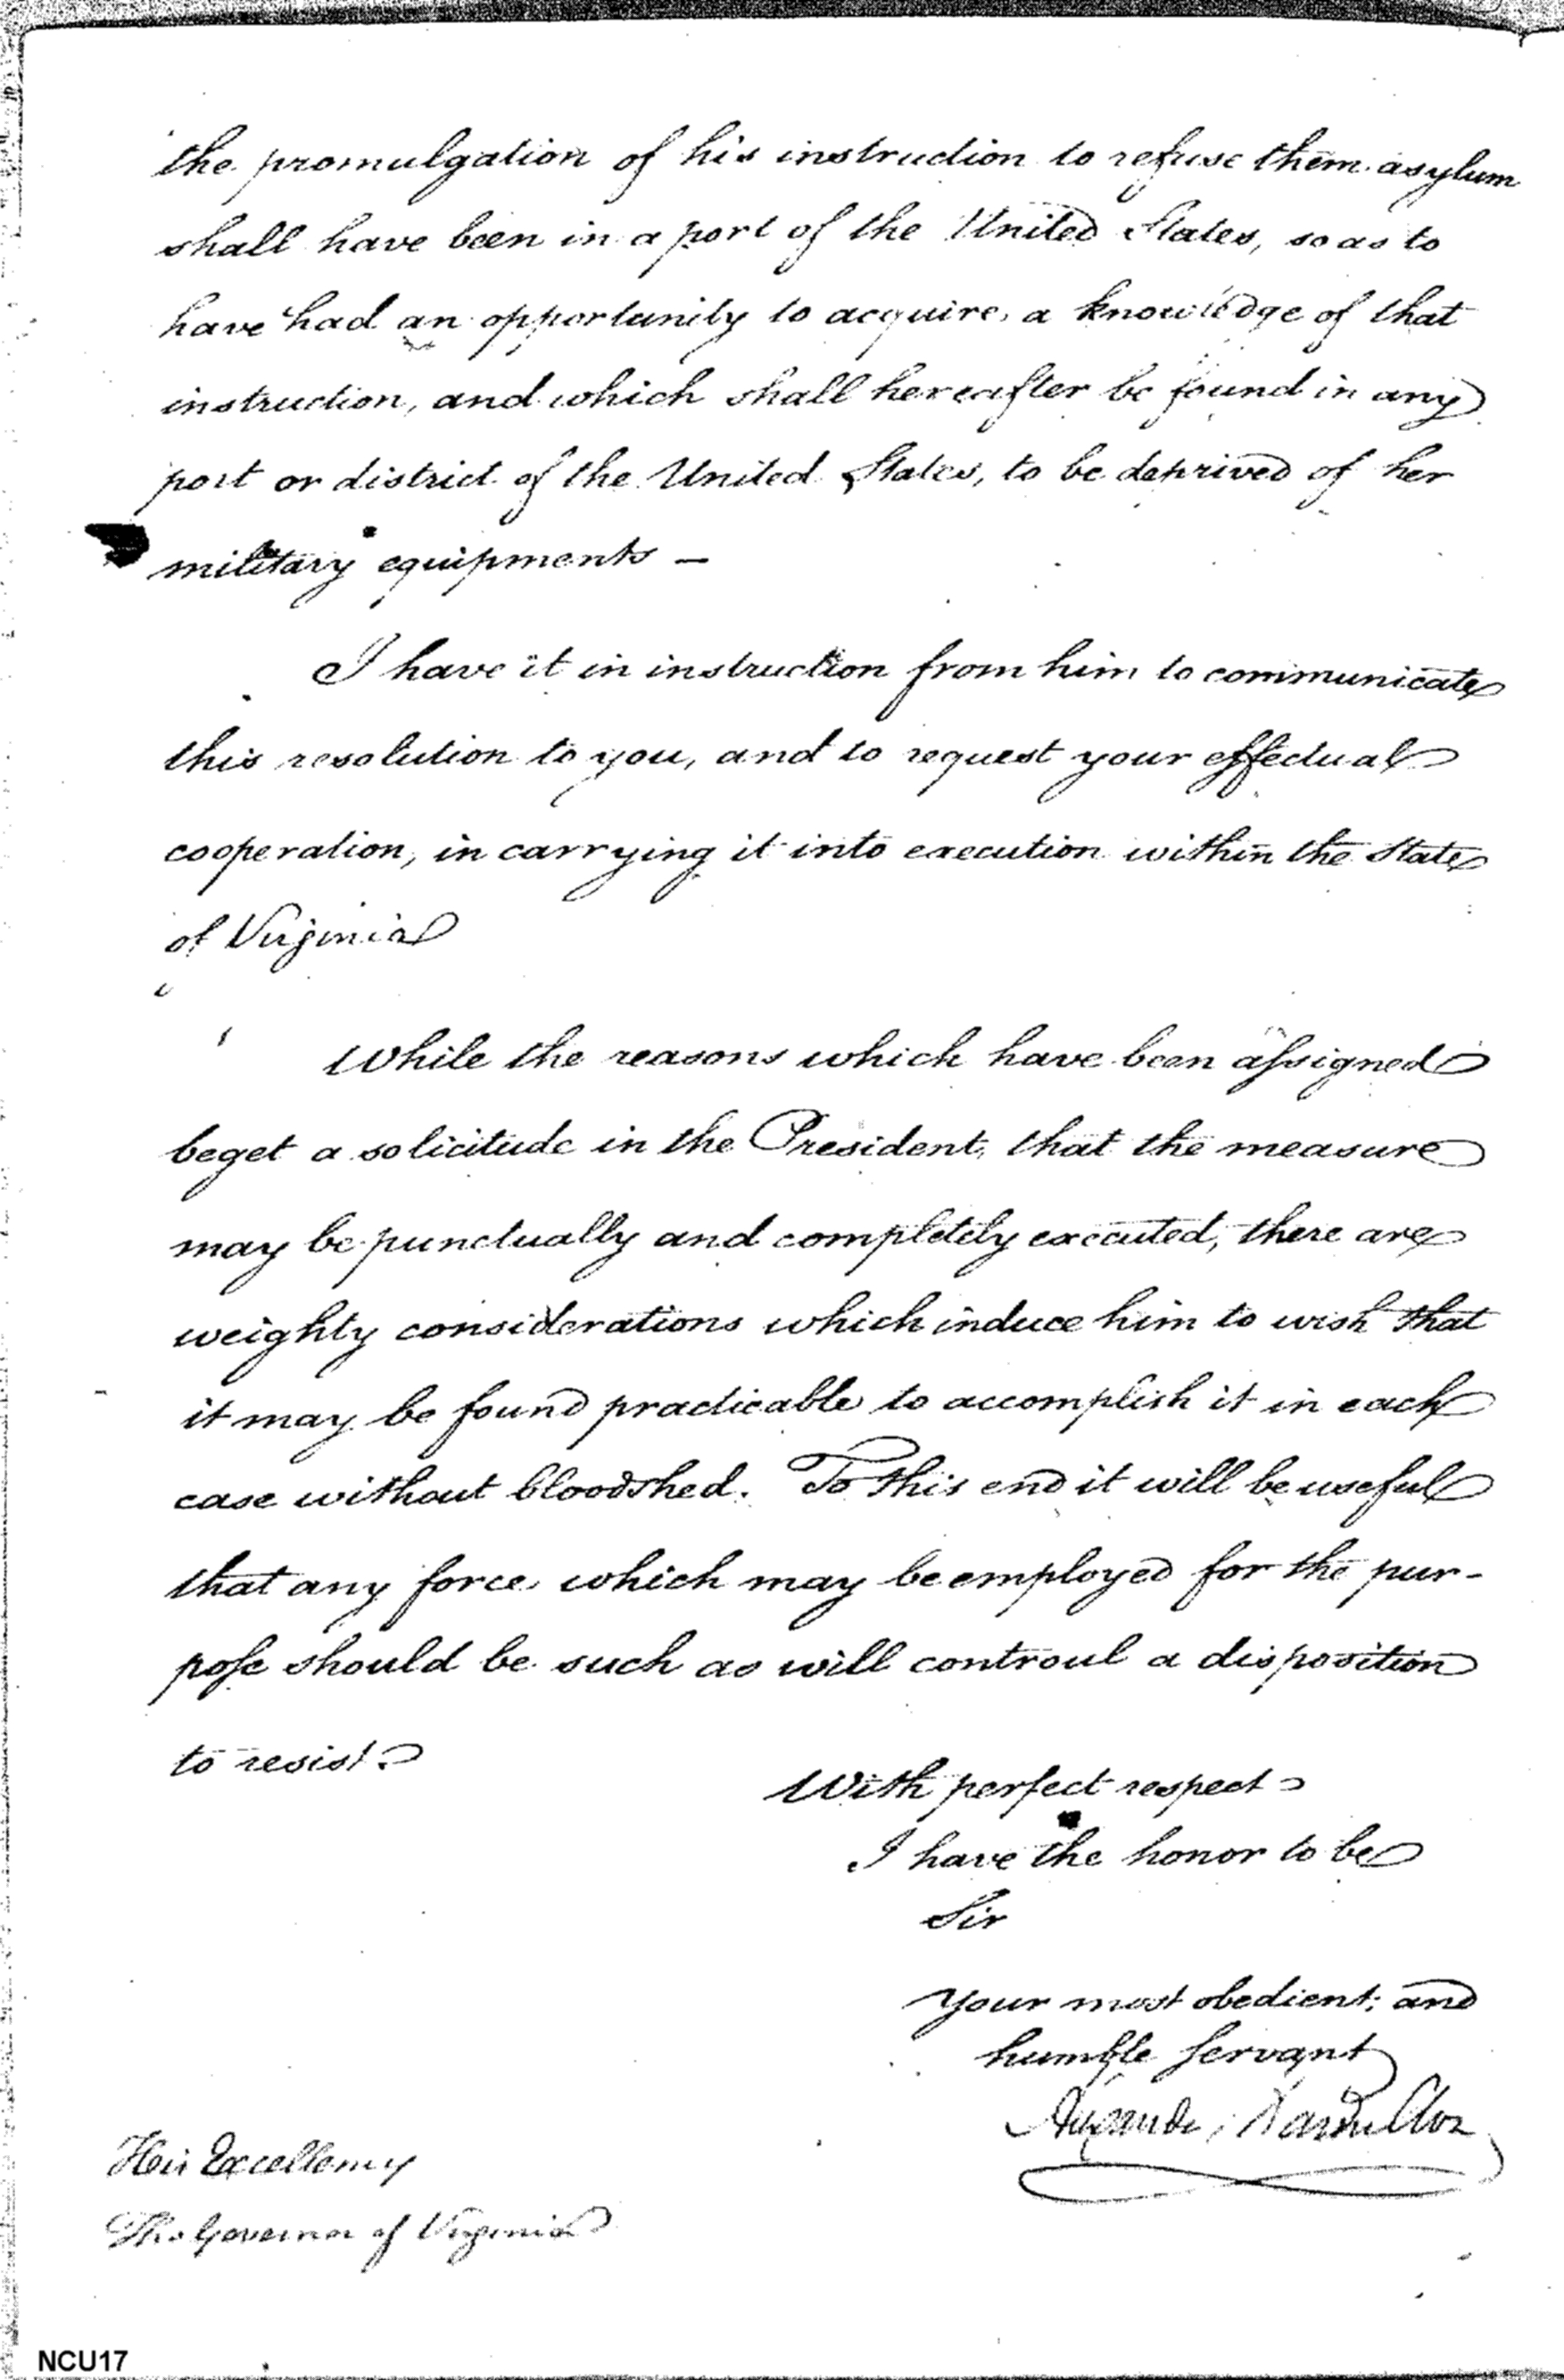 the promulgation of his instruction to refuse them asylum
shall have been in a port of the United States, so as to
have had an opportunity to acquire, a knowledge of that
instruction, and which shall hereafter be found in any
port or district of the United States, to be deprived of her
military equipments —
I have it in instruction from him to communicate
this resolution to you, and to request your effectual
cooperation, in carrying it into execution within the State
of Virginia
While the reasons which have been assigned
beget a solicitude in the President, that the measure
may be punctually and completely executed, there are
weighty considerations which induce him to wish that
it may be found practicable to accomplish it in each
case without bloodshed. To this end it will be useful
that any force, which may be employed for the pur-
pose should be such as will controul a disposition
to resist.
With perfect respect
I have the honor to be
Sir
Your most obedient; and
humble servant
His Excellency
The Governor of Virginia
NCU17